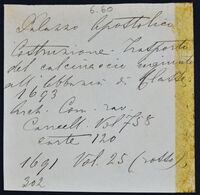 6.60
Palazzo Apostolico
Costruzione. Trasporto
del calcinaccio
all'abbazia di Classe
1693
Arch. Com. rav.
Cancell. Vol 738
carte 120
1691 Vol. 25 (rosso)
202